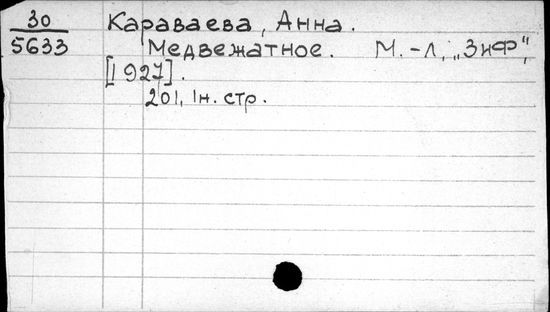 30 Караваева, Анна.
5633 Медвежатное. М.-Л, „ЗиФ",
[1927].
201, 1н. стр.